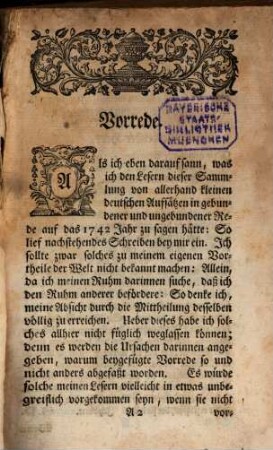 Vorrede
BAYERISCHE
STAATS-
BIBLIOTHEK
MUENCHEN
Als ich eben darauf sann, was
ich den Lesern dieser Samm-
lung von allerhand kleinen
deutschen Auffsätzen in gebun-
dener und ungebundener Re-
de auf das 1742 Jahr zu sagen hätte: So
lief nachstehendes Schreiben bey mir ein. Ich
sollte zwar solches zu meinem eigenen Vor-
theile der Welt nicht bekannt machen: Allein,
da ich meinen Ruhm darinnen suche, daß ich
den Ruhm anderer befördere: So denke ich,
meine Absicht durch die Mittheilung desselben
völlig zu erreichen. Ueber dieses habe ich sol-
ches allhier nicht füglich weglassen können;
denn es werden die Ursachen darinnen ange-
geben, warum beygefügte Vorrede so und
nicht anders abgefaßt worden. Es würde
solche meinen Lesern vielleicht in etwas unbe-
greiflich vorgekommen seyn, wenn sie nicht
A 2 vor-